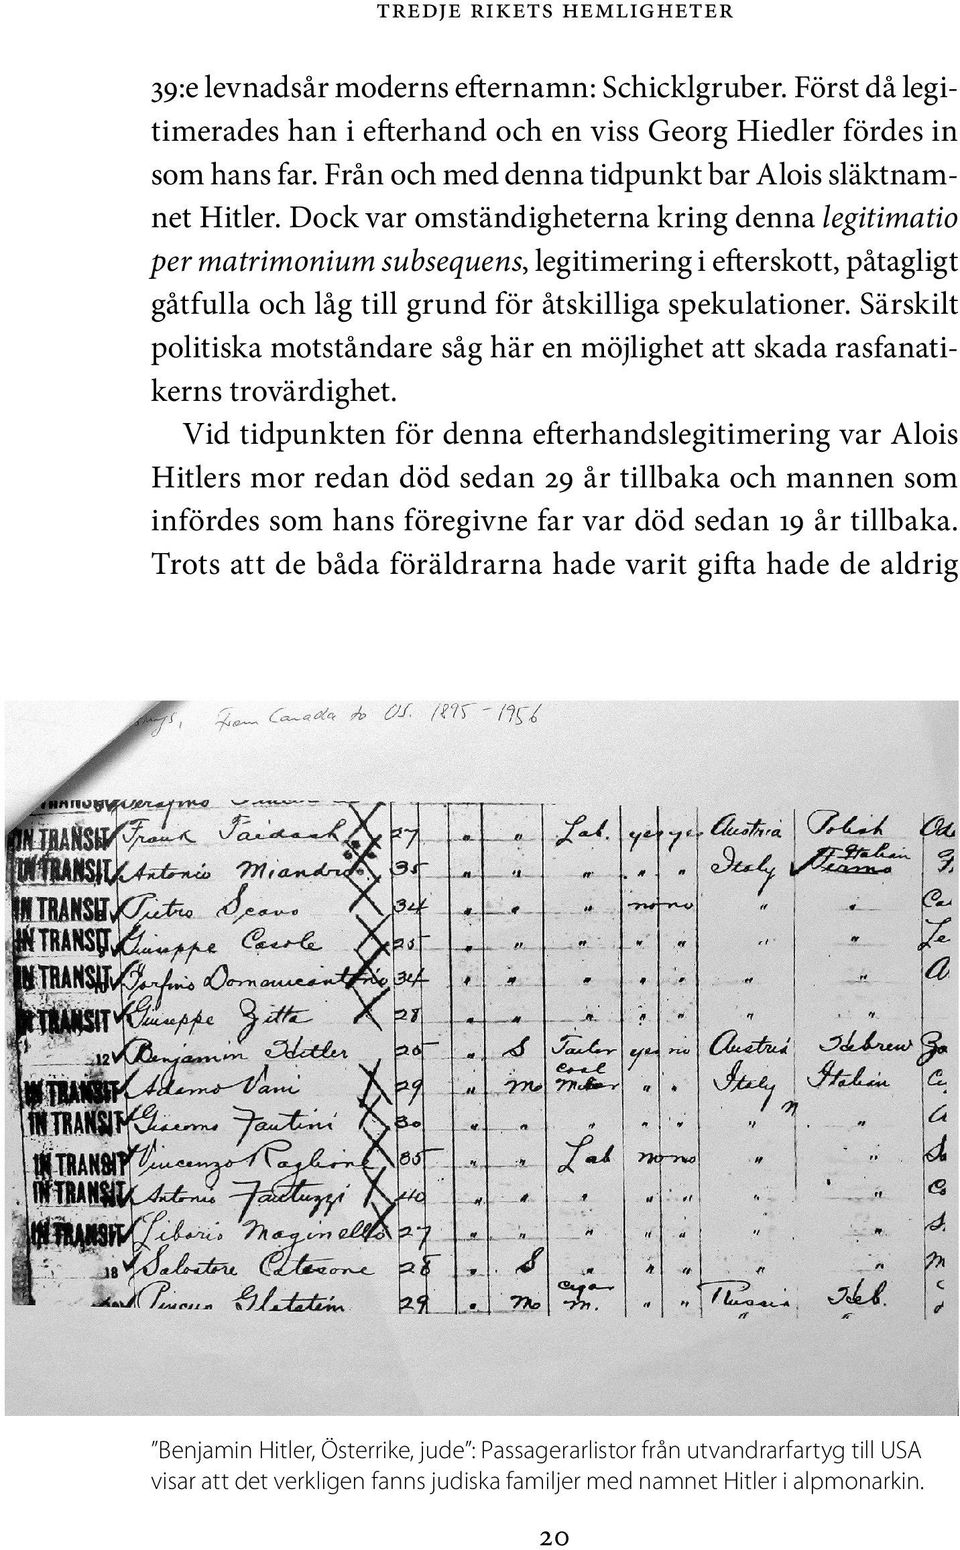 TREDJE RIKETS HEMLIGHETER
39:e levnadsår moderns efternamn: Schicklgruber. Först då legi-
timerades han i efterhand och en viss Georg Hiedler fördes in
som hans far. Från och med denna tidpunkt bar Alois släktnam-
net Hitler. Dock var omständigheterna kring denna legitimatio
per matrimonium subsequens, legitimering i efterskott, påtagligt
gåtfulla och låg till grund för åtskilliga spekulationer. Särskilt
politiska motståndare såg här en möjlighet att skada rasfanati-
kerns trovärdighet.
Vid tidpunkten för denna efterhandslegitimering var Alois
Hitlers mor redan död sedan 29 år tillbaka och mannen som
infördes som hans föregivne far var död sedan 19 år tillbaka.
Trots att de båda föräldrarna hade varit gifta hade de aldrig
From Canada to US. 1895-1956
IN TRANSIT Frank 27 " " Lab. yes yes Austria Polish
IN TRANSIT Antonio Miandro 35 " " " " " Italy Italian
IN TRANSIT Pietro Scavo 34 " " " no no " "
IN TRANSIT Giuseppe Casole 25 " " " " " " "
IN TRANSIT 34 " " " " " " "
IN TRANSIT Giuseppe Zitta 28 " " " " " " "
12 Benjamin Hitler 20 " S Tailor yes no Austria Hebrew
IN TRANSIT Adamo Vani 29 " m coal miner " " Italy Italian
IN TRANSIT Giacomo Fantini 30 " " " " " " "
IN TRANSIT Vincenzo Raglione 35 " " Lab no no " "
IN TRANSIT Antonio Fantuzzi 40 " " " " " " "
IN TRANSIT Liborio Maginello 27 " " " " " " "
18 Salvatore Catesone 28 " S " " " " "
29 " m cigar m. " " Russia Heb.
”Benjamin Hitler, Österrike, jude”: Passagerarlistor från utvandrarfartyg till USA
visar att det verkligen fanns judiska familjer med namnet Hitler i alpmonarkin.
20